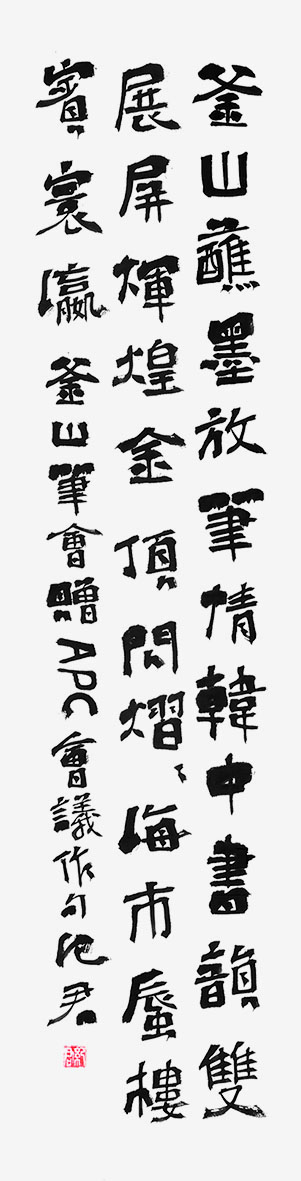 釜山蘸墨放筆情韓中書韻雙
展屏煇煌金頂閃熠〻海市蜃樓
賓寰瀛 釜山筆會贈APC會議作句